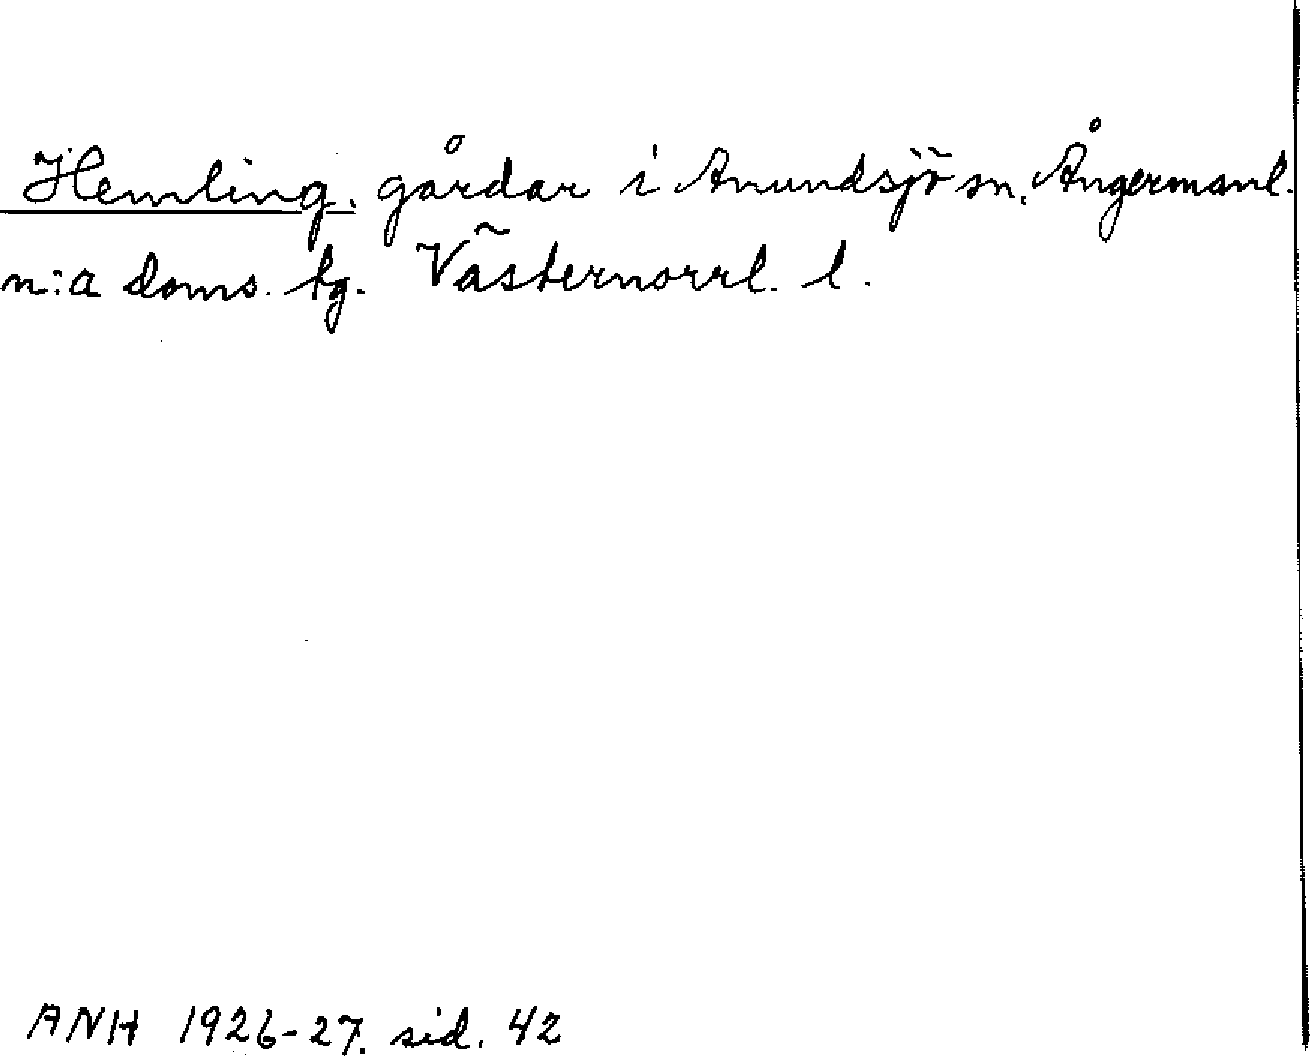 Hemling. gårdar i Anundsjö sn, Ångermanl.
n:a doms. tg. Västernorrl. l.
ANH 1926-27. sid. 42